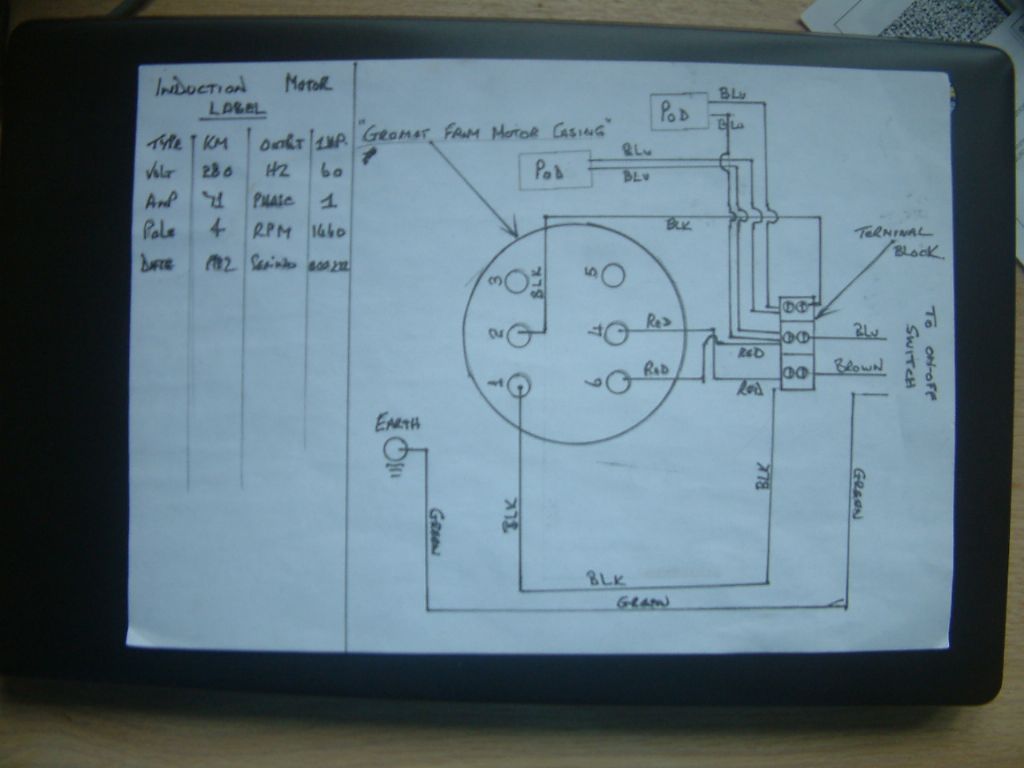 INDUCTION MOTOR
LABEL
TYPE KM OUTPUT 1 H.P.
VOLT 230 HZ 60
AMP PHASE 1
POLE 4 RPM 1460
DATE
"GROMAT FROM MOTOR CASING"
POD BLU
BLU
POD BLU
BLU
BLK
TERMINAL
BLOCK.
3 BLK 5
2 4 RED
RED
BLU
1 6 RED
RED
BROWN
TO ON-OFF
SWITCH
EARTH
GREEN
BLK
BLK
GREEN
BLK
GREEN